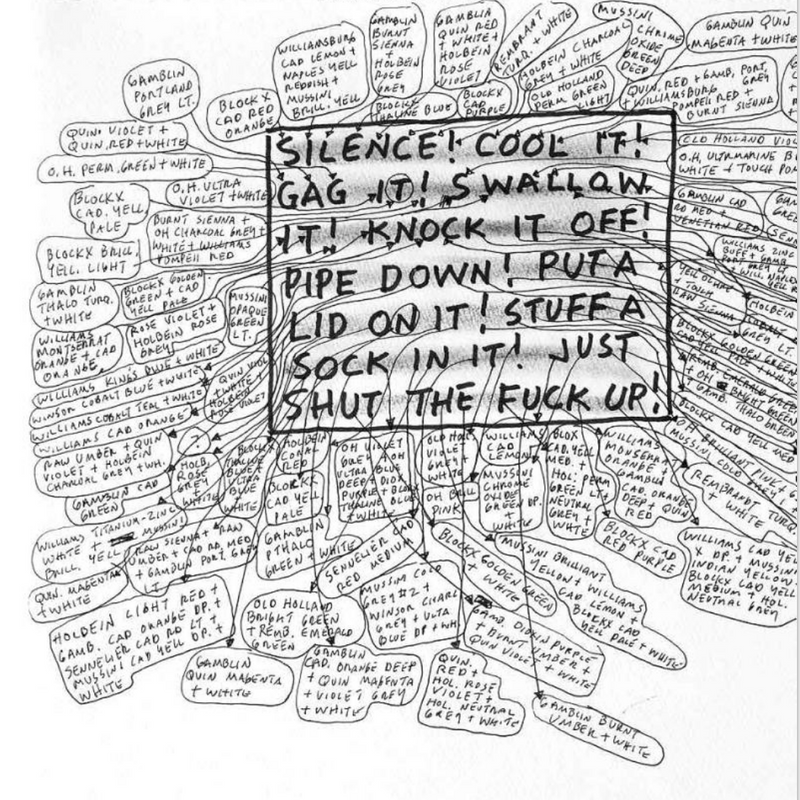 SILENCE! COOL IT!
GAG IT! SWALLOW
IT! KNOCK IT OFF!
PIPE DOWN! PUT A
LID ON IT! STUFF A
SOCK IN IT! JUST
SHUT THE FUCK UP!
GAMBLIN
PORTLAND
GREY LT.
BLOCKX
CAD RED
ORANGE
WILLIAMSBURG
CAD LEMON +
NAPLES YELL
REDDISH +
MUSSINI
BRILL. YELL
GAMBLIN
BURNT
SIENNA +
HOLBEIN
ROSE
GREY
BLOCKX
THALINE BLUE
GAMBLIN
QUIN RED
+ WHITE +
HOLBEIN
ROSE
VIOLET
BLOCKX
CAD
PURPLE
REMBRANDT
TURQ. + WHITE
HOLBEIN CHARCOAL
GREY + WHITE
OLD HOLLAND
PERM GREEN
LIGHT
MUSSINI
CHROME
OXIDE
GREEN
DEEP
GAMBLIN QUIN
MAGENTA + WHITE
QUIN. RED + GAMB. PORT.
GREY
+ WILLIAMSBURG
POMPEII RED +
BURNT SIENNA
QUIN. VIOLET +
QUIN. RED + WHITE
O.H. PERM. GREEN + WHITE
O.H. ULTRA
VIOLET + WHITE
BLOCKX
CAD. YELL.
PALE
BURNT SIENNA +
OH CHARCOAL GREY +
WHITE + WILLIAMS
POMPEII RED
BLOCKX BRILL.
YELL. LIGHT
GAMBLIN
THALO TURQ.
+ WHITE
BLOCKX GOLDEN
GREEN + CAD
YELL PALE
MUSSINI
OPAQUE
GREEN
LT.
ROSE VIOLET +
HOLBEIN ROSE
GREY
WILLIAMS
MONTSERRAT
ORANGE + CAD
ORANGE
WILLIAMS KING'S BLUE + WHITE
WINSOR COBALT BLUE + WHITE
WILLIAMS COBALT TEAL + WHITE
WILLIAMS CAD ORANGE
QUIN VIOLET
+ WHITE +
HOLBEIN
ROSE VIOLET
RAW UMBER + QUIN
VIOLET + HOLBEIN
CHARCOAL GREY + WH.
?
HOLB.
ROSE
GREY
+
WHITE
GAMBLIN CAD
GREEN
BLOCKX
THALINE
BLUE +
ULTRA
BLUE +
WHITE
WILLIAMS TITANIUM-ZINC
WHITE + MUSSINI
BRILL. YELL
RAW SIENNA + RAW
UMBER + CAD RD. MED
+ GAMBLIN PORT. GREY
LT
QUIN. MAGENTA
+ WHITE
HOLBEIN LIGHT RED +
GAMB. CAD ORANGE DP. +
SENNELIER CAD RD LT +
MUSSINI CAD YELL DP. +
WHITE
HOLBEIN
CORAL
RED
BLOCKX
CAD YELL
PALE
GAMBLIN
PTHALO
GREEN + WHITE
OH VIOLET
GREY + OH
ULTRA BLUE
DEEP + DIOX
PURPLE + BLOCKX
THALINE BLUE
+ WHITE
SENNELIER CAD
RED MEDIUM
OLD HOLLAND
BRIGHT GREEN
+ REMB. EMERALD
GREEN
GAMBLIN
QUIN MAGENTA
+ WHITE
GAMBLIN
CAD. ORANGE DEEP
+ QUIN MAGENTA
+ VIOLET GREY
+ WHITE
MUSSINI COLD
GREY #2 +
WINSOR CHARC.
GREY + ULTA
BLUE DP + WH.
OLD HOLL.
VIOLET
GREY +
WHITE
OH BRILL
PINK
WILLIAMS
CAD
LEMON
MUSSINI
CHROME
OXIDE
GREEN DP.
+
WHITE
BLOX
CAD. YELL
MED. +
HOL. PERM
GREEN LT +
NEUTRAL
GREY +
WHITE
WILLIAMS
MONSERRAT
ORANGE +
GAMBLIN
CAD. ORANGE
DEEP + QUIN
RED
BLOCKX CAD
RED PURPLE
BLOCKX GOLDEN GREEN
+ WHITE
MUSSINI BRILLIANT
YELLOW + WILLIAMS
CAD LEMON +
BLOCKX CAD
YELL PALE + WHITE
GAMB. DIOXIN PURPLE
+ BURNT UMBER +
QUIN VIOLET + WHITE
QUIN.
RED +
HOL. ROSE
VIOLET +
HOL. NEUTRAL
GREY + WHITE
GAMBLIN BURNT
UMBER + WHITE
WILLIAMS CAD YELL
DP. + MUSSINI
INDIAN YELLOW +
BLOCKX CAD YELL
MEDIUM + HOL.
NEUTRAL GREY
REMBRANDT TURQ.
+ WHITE
OH BRILLIANT PINK +
MUSSINI COLD
BLOCKX CAD YELL MED
OLD HOLLAND
O.H. ULTRAMARINE
WHITE + TOUCH
GAMBLIN CAD
RD MED +
VENETIAN RED
WILLIAMS ZINC
BUFF + GAMB.
PORT GREY LT
+ WILL NAPLES
YELL OCHRE
+ TOUCH
RAW SIENNA
HOLBEIN
BLOCKX GOLDEN GREEN